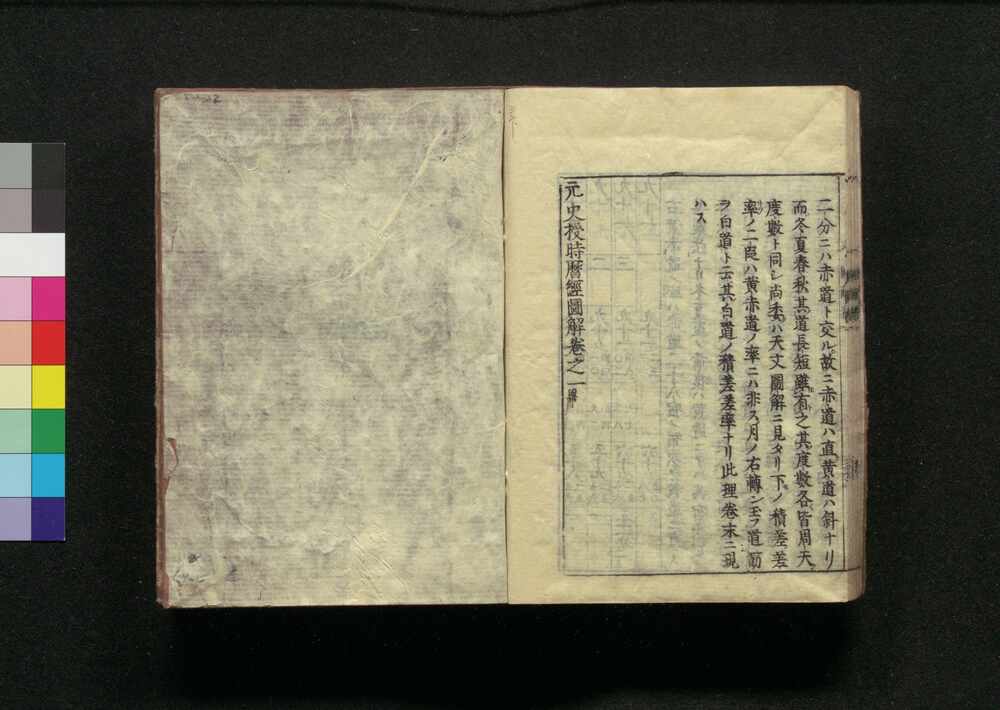 二分ニハ赤道ト交ル故ニ赤道ハ直黄道ハ斜ナリ
而冬夏春秋其道長短雖有之其度數各皆周天
度數ト同シ尚委ハ天文圖解ニ見タリ下ノ積差差
率ノ二段ハ黄赤道ノ率ニハ非ス月ノ右轉シ玉フ道筋
ヲ白道ト云其白道ノ積差差率ナリ此理卷末ニ現
ハス
元史授時曆經圖解卷之一 畢